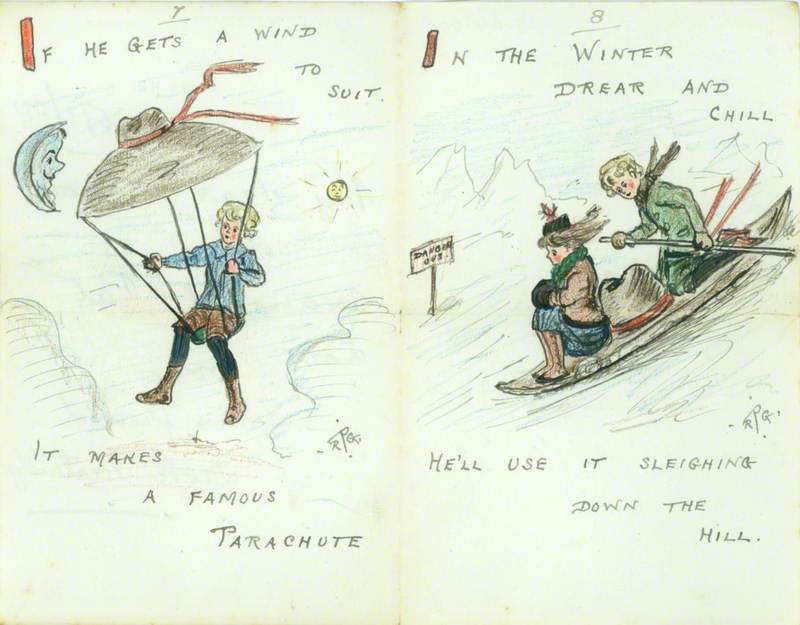 7
IF HE GETS A WIND
TO
SUIT.
R.P.G.
IT MAKES
A FAMOUS
PARACHUTE
8
IN THE WINTER
DREAR AND
CHILL
DANGER
OUS.
R.P.G.
HE'LL USE IT SLEIGHING
DOWN THE
HILL.